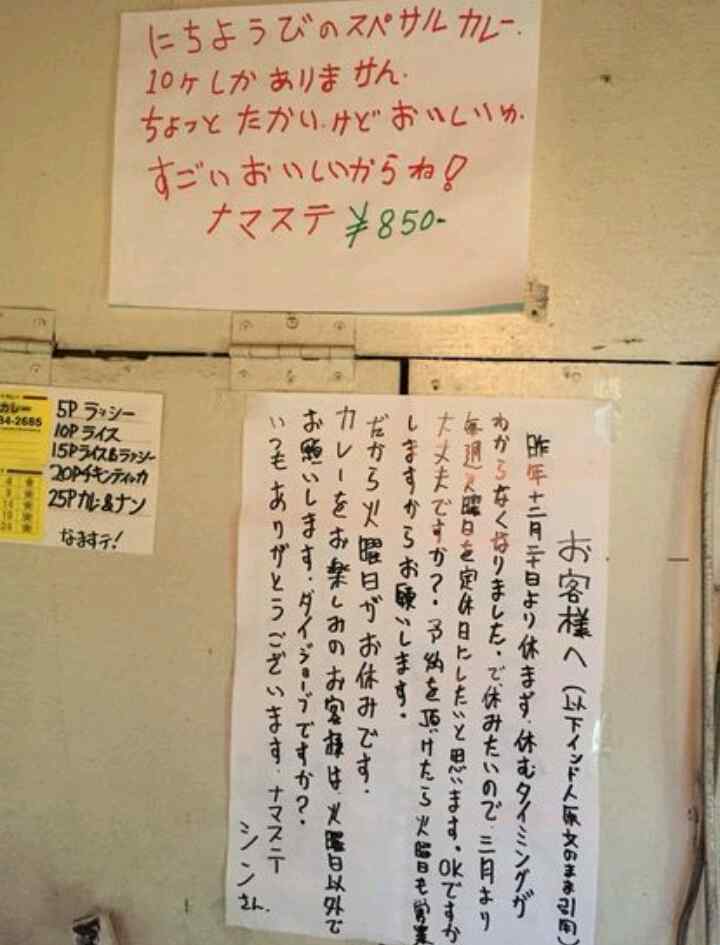 にちようびのスペサルカレー.
10ケしかありません.
ちょっとたかい.けどおいしいゆ.
すごいおいしいからね!
ナマステ ¥850-
カレー
34-2685
5P ラッシー
10P ライス
15P ライス&ラッシー
20P チキンティッカ
25P カレー&ナン
なますテ!
お客様へ(以下インド人原文のまま引用)
昨年十二月二十日より休まず.休むタイミングが
わからなくなりました。で、休みたいので、三月より
毎週火曜日を定休日にしたいと思います。OKですか
大丈夫ですか?.予約を頂けたら火曜日も営業
しますからお願いします。
だから火曜日がお休みです.
カレーをお楽しみのお客様は、火曜日以外で
お願いします.ダイジョーブですか?.
いつもありがとうございます.ナマステ
シンさん.